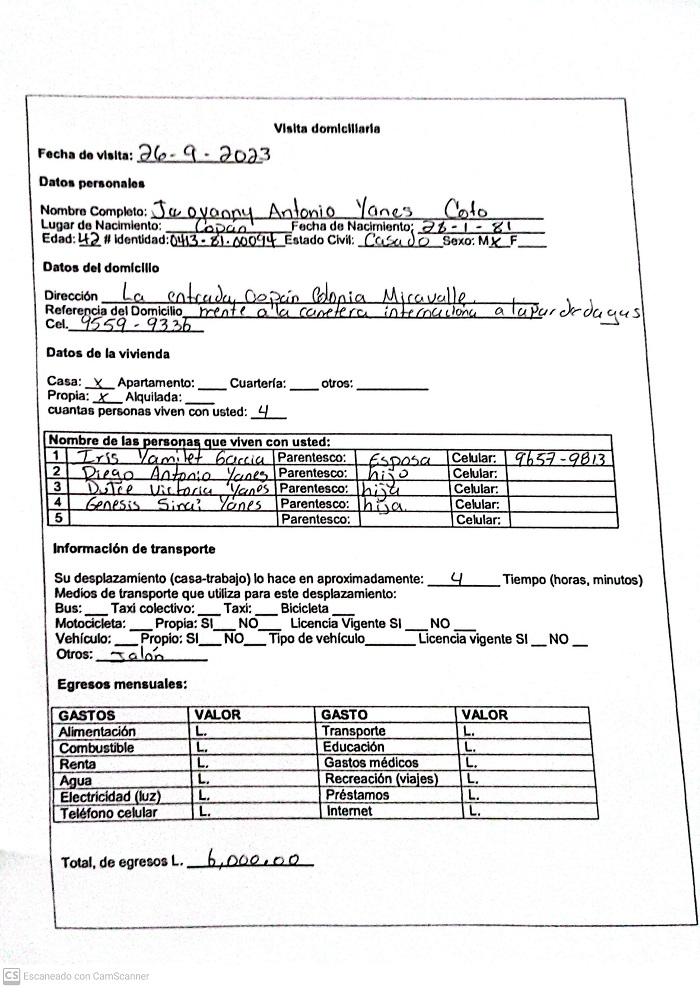 Visita domiciliaria
Fecha de visita: 26-9-2023
Datos personales
Nombre Completo: Antonio Yanes Coto
Lugar de Nacimiento: Copán Fecha de Nacimiento: 28-1-81
Edad: 42 # Identidad: 0413-81-00094 Estado Civil: Casado Sexo: M X F
Datos del domicilio
Dirección La entrada, Copán Colonia Miravalle
Referencia del Domicilio a la internaciona
Cel. 9559-9336
Datos de la vivienda
Casa: x Apartamento: ____ Cuartería: ____ otros: ____
Propia: x Alquilada: ____
cuantas personas viven con usted: 4
Nombre de las personas que viven con usted:
1 Iris Yamilet Garcia Parentesco: Esposa Celular: 9657-9813
2 Diego Antonio Yanes Parentesco: hijo Celular:
3 Dulce Victoria Yanes Parentesco: hija Celular:
4 Genesis Sirai Yanes Parentesco: hija. Celular:
5 Parentesco: Celular:
Información de transporte
Su desplazamiento (casa-trabajo) lo hace en aproximadamente: 4 Tiempo (horas, minutos)
Medios de transporte que utiliza para este desplazamiento:
Bus: ____ Taxi colectivo: ____ Taxi: ____ Bicicleta ____
Motocicleta: ____ Propia: SI____ NO____ Licencia Vigente SI ____ NO ____
Vehículo: ____ Propio: SI____ NO____ Tipo de vehículo________ Licencia vigente SI __ NO __
Otros: Jalón
Egresos mensuales:
GASTOS VALOR GASTO VALOR
Alimentación L. Transporte L.
Combustible L. Educación L.
Renta L. Gastos médicos L.
Agua L. Recreación (viajes) L.
Electricidad (luz) L. Préstamos L.
Teléfono celular L. Internet L.
Total, de egresos L. 6,000.00
CS Escaneado con CamScanner